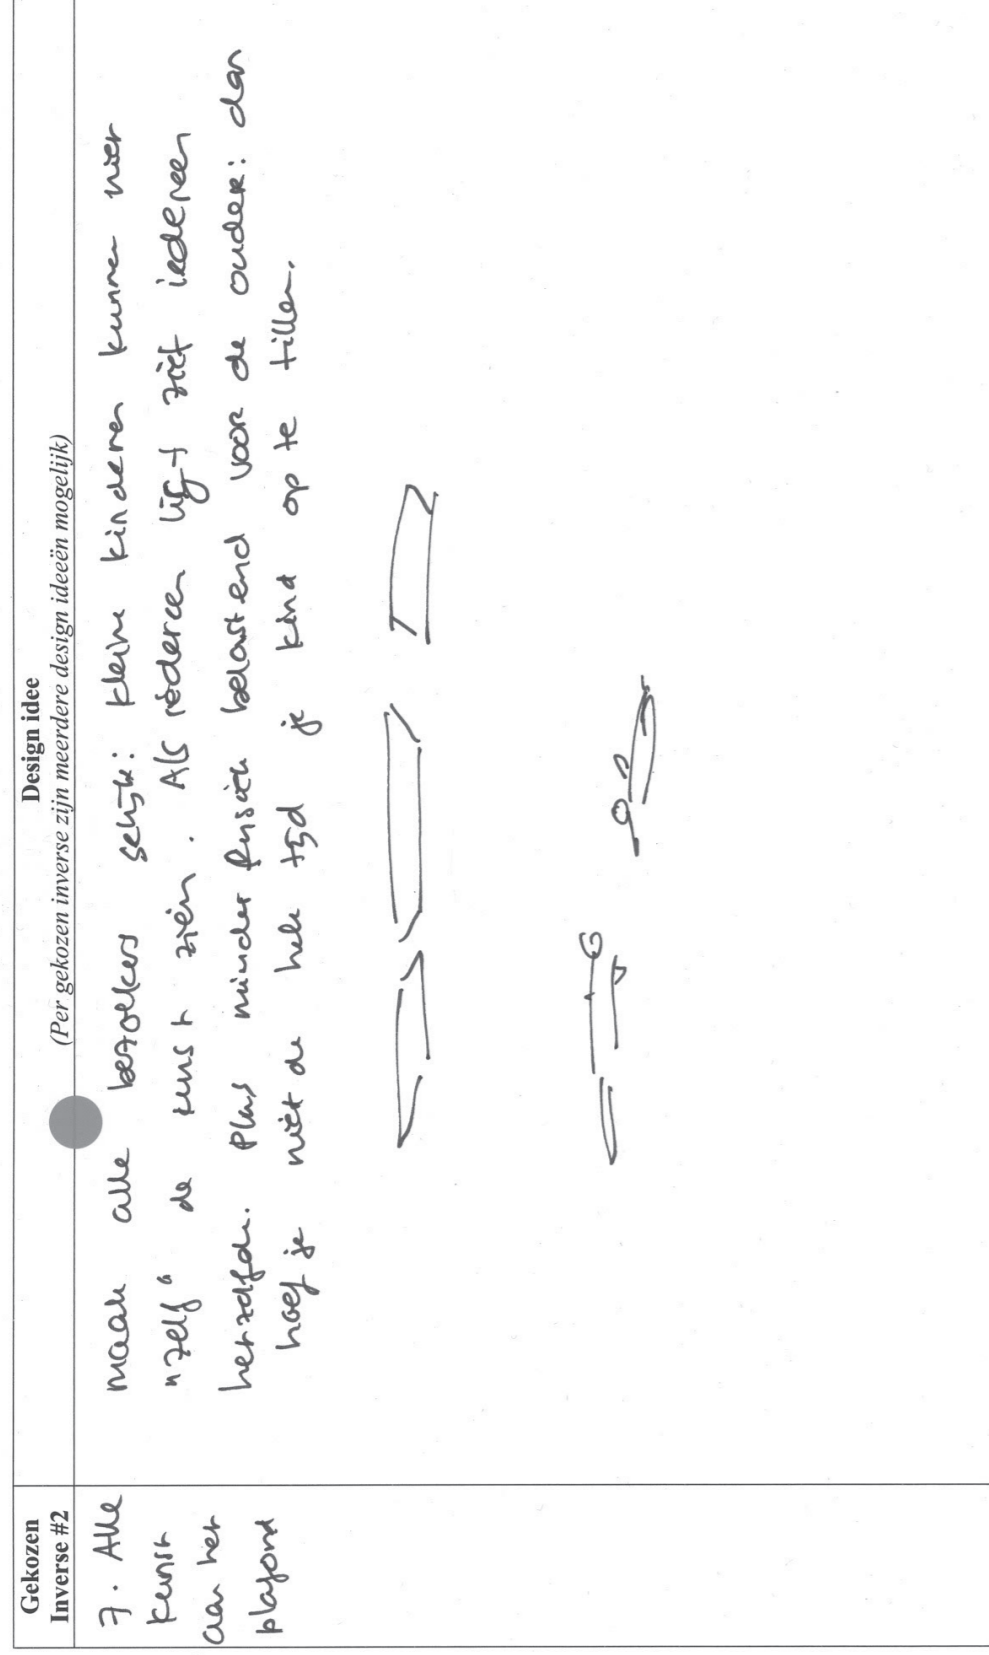 Gekozen
Inverse #2
Design idee
(Per gekozen inverse zijn meerdere design ideeën mogelijk)
7. Alle
kunst
aan het
plafond
maak alle bezoekers gelijk: kleine kinderen kunnen niet
"zelf" de kunst zien. Als iedereen ligt ziet iedereen
hetzelfde. Plus minder fysiek belastend voor de ouder: dan
hoef je niet de hele tijd je kind op te tillen.